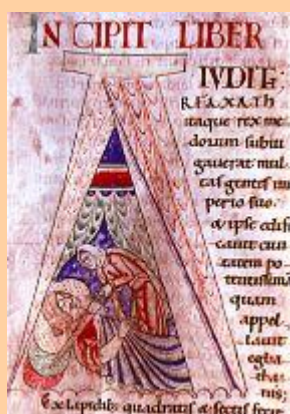 INCIPIT LIBER
IVDIT:
RFAXATH
itaque rex me
dorum subiu
gauerat mul
tas gentes im
perio suo.
& ipse edifi
cauit ciui
tatem po
tentissimā
quam
appel
lauit
egba
tha
nis;
Ex lapidib; quadratis & sectis fecit